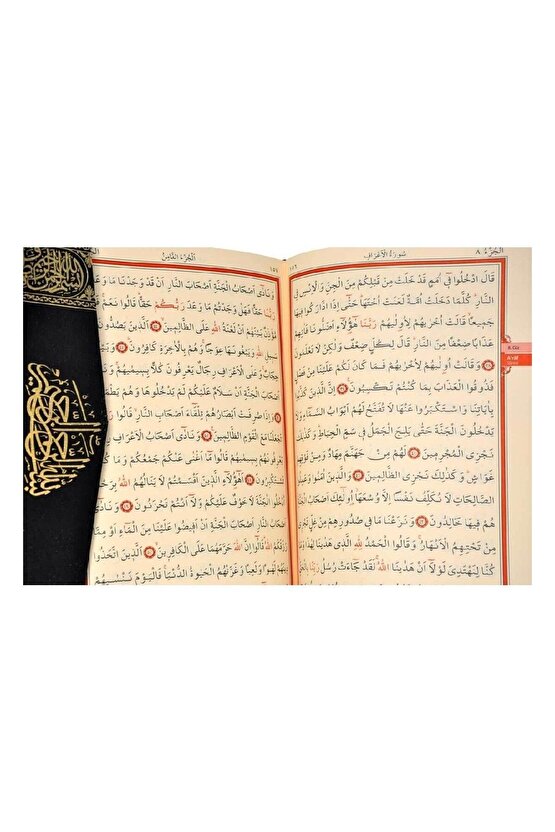 الجزء ٨
سورة الاعراف
قال ادخلوا في امم قد خلت من قبلكم من الجن والانس في
النار كلما دخلت امة لعنت اختها حتى اذا اداركوا فيها
جميعا قالت اخريهم لاوليهم ربنا هؤلاء اضلونا فاتهم
عذابا ضعفا من النار قال لكل ضعف ولكن لا تعلمون
وقالت اوليهم لاخريهم فما كان لكم علينا من فضل
فذوقوا العذاب بما كنتم تكسبون ان الذين كذبوا
باياتنا واستكبروا عنها لا تفتح لهم ابواب السماء ولا
يدخلون الجنة حتى يلج الجمل في سم الخياط وكذلك
نجزي المجرمين لهم من جهنم مهاد ومن فوقهم
غواش وكذلك نجزي الظالمين والذين امنوا وعملوا
الصالحات لا نكلف نفسا الا وسعها اولئك اصحاب الجنة
هم فيها خالدون ونزعنا ما في صدورهم من غل تجري
من تحتهم الانهار وقالوا الحمد لله الذي هدينا لهذا وما
كنا لنهتدي لولا ان هدينا الله لقد جاءت رسل ربنا بالحق
8. Cüz
A'râf
الجزء الثامن
ونادى اصحاب الجنة اصحاب النار ان قد وجدنا ما وعدنا
ربنا حقا فهل وجدتم ما وعد ربكم حقا قالوا نعم
مؤذن بينهم ان لعنة الله على الظالمين الذين يصدون
سبيل الله ويبغونها عوجا وهم بالاخرة كافرون
وعلى الاعراف رجال يعرفون كلا بسيميهم
الجنة ان سلام عليكم لم يدخلوها وهم يطمعون
واذا صرفت ابصارهم تلقاء اصحاب النار قالوا
تجعلنا مع القوم الظالمين ونادى اصحاب الاعراف
يعرفونهم بسيميهم قالوا ما اغنى عنكم جمعكم وما كنتم
تستكبرون اهؤلاء الذين اقسمتم لا ينالهم الله برحمة
ادخلوا الجنة لا خوف عليكم ولا انتم تحزنون
اصحاب النار اصحاب الجنة ان افيضوا علينا من الماء او مما
رزقكم الله قالوا ان الله حرمهما على الكافرين الذين اتخذوا
دينهم لهوا ولعبا وغرتهم الحيوة الدنيا فاليوم ننسيهم